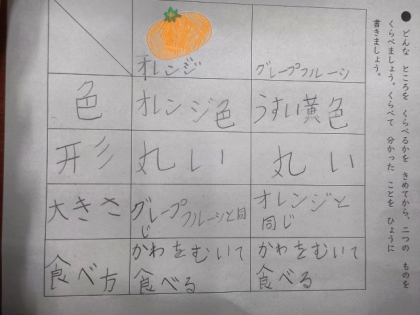 ● どんな ところを くらべるかを きめてから、二つの ものを
くらべましょう。くらべて 分かった ことを ひょうに
書きましょう。
オレンジ
グレープフルーツ
色
オレンジ色
うすい黄色
形
丸い
丸い
大きさ
グレープフルーツと同
じ
オレンジと
同じ
食べ方
かわをむいて
食べる
かわをむいて
食べる